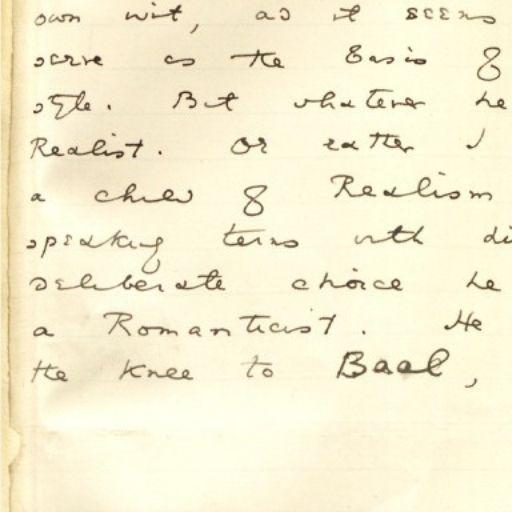 own wit, as it seems
serve as the basis of
style. But whatever he
Realist. Or rather I
a child of Realism
speaking terms with
deliberate choice he
a Romanticist. He
the knee to Baal,